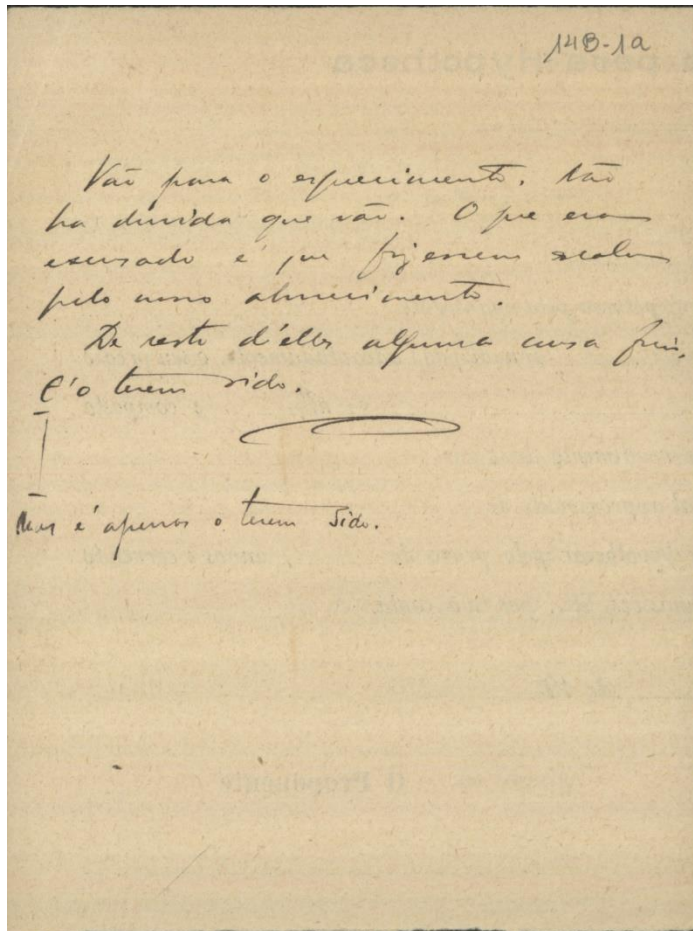 14B-1a
Vão para o esquecimento. Não
ha duvida que vão. O que era
escusado é que fizessem escalas
pelo nosso aborrecimento.
De resto d'elles alguma cousa fica,
É o terem sido.
Mas é apenas o terem sido.
O Proponente